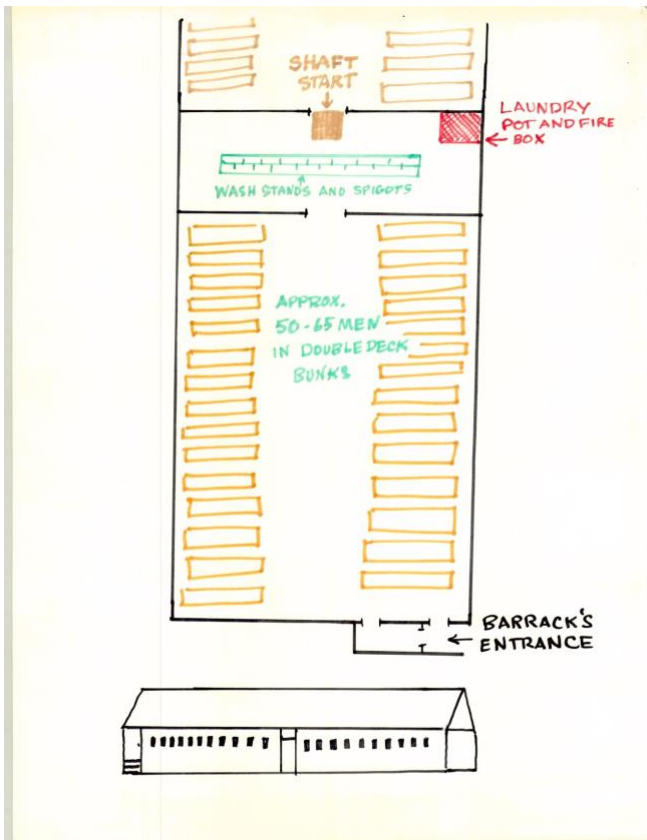 SHAFT
START
LAUNDRY
POT AND FIRE
BOX
WASH STANDS AND SPIGOTS
APPROX.
50-65 MEN
IN DOUBLE DECK
BUNKS
BARRACK'S
ENTRANCE